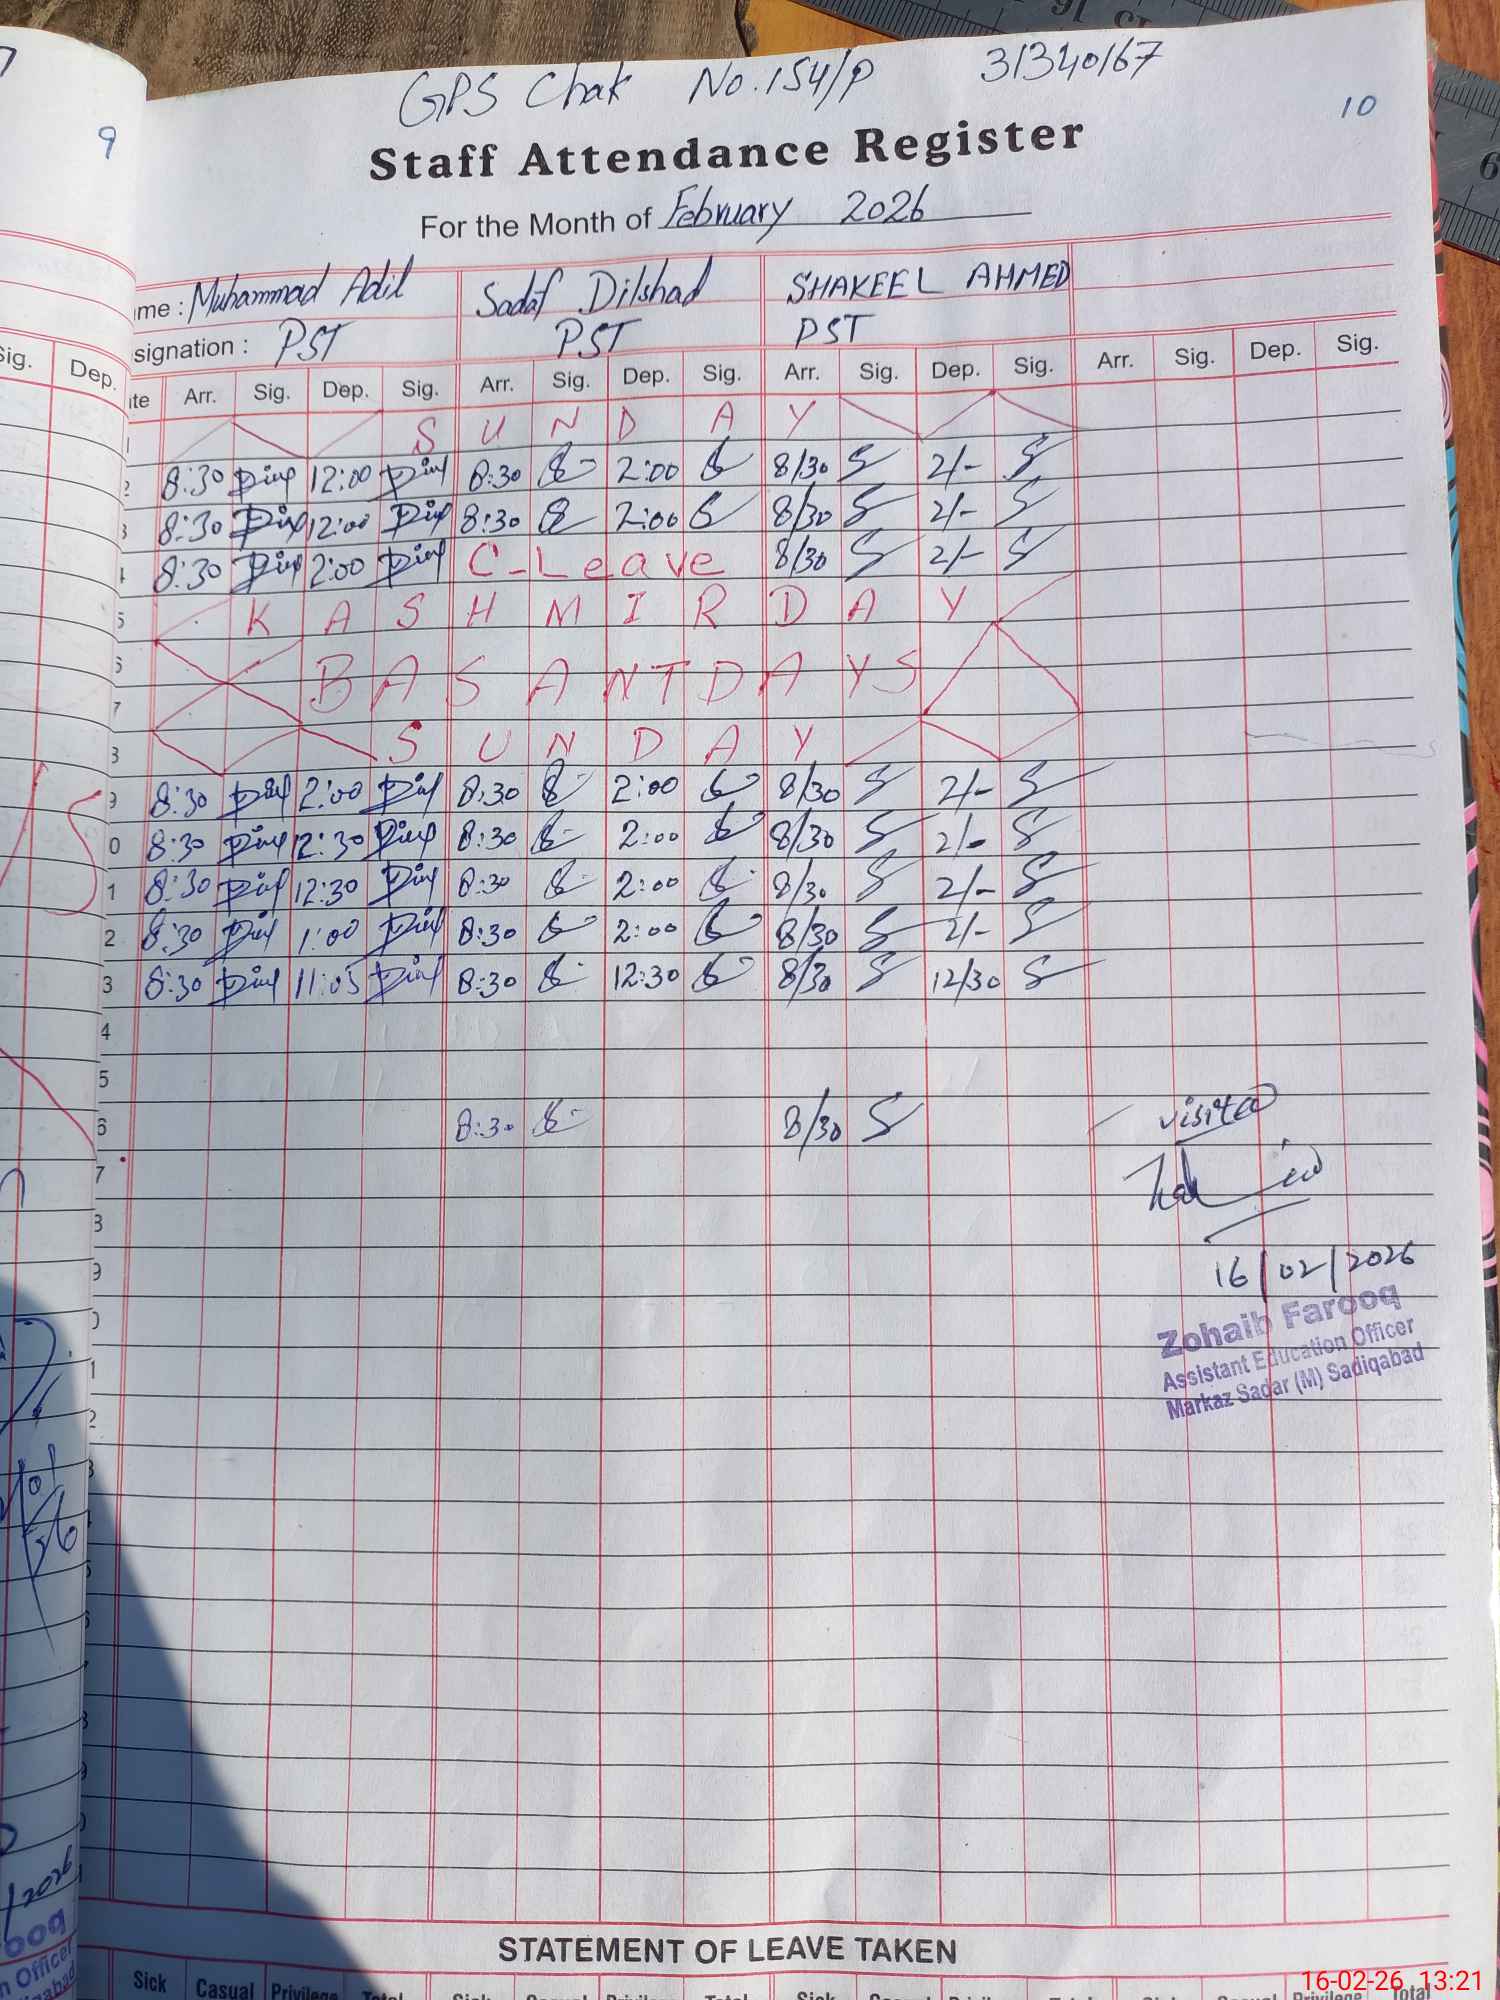 GPS Chak No.154/P 31340167
9
10
Staff Attendance Register
For the Month of February 2026
me : Muhammad Adil Sadaf Dilshad SHAKEEL AHMED
signation : PST PST PST
Sig. Dep.
te Arr. Sig. Dep. Sig. Arr. Sig. Dep. Sig. Arr. Sig. Dep. Sig. Arr. Sig. Dep. Sig.
1 SUNDAY
2 8:30 12:00 8:30 2:00 8/30 2/-
3 8:30 12:00 8:30 2:00 8/30 2/-
4 8:30 2:00 C-Leave 8/30 2/-
5 KASHMIR DAY
6
BASANT DAYS
7
8 SUNDAY
9 8:30 2:00 8:30 2:00 8/30 2/-
0 8:30 12:30 8:30 2:00 8/30 2/-
1 8:30 12:30 8:30 2:00 8/30 2/-
2 8:30 1:00 8:30 2:00 8/30 2/-
3 8:30 11:05 8:30 12:30 8/30 12/30
4
5
6 8:30 8/30 visited
7
8
9 16/02/2026
0
Zohaib Farooq
Assistant Education Officer
Markaz Sadar (M) Sadiqabad
1
2
3
STATEMENT OF LEAVE TAKEN
Sick Casual Privilege Total Sick Casual Privilege Total Sick Casual Privilege Total Sick Casual Privilege Total
16-02-26 13:21